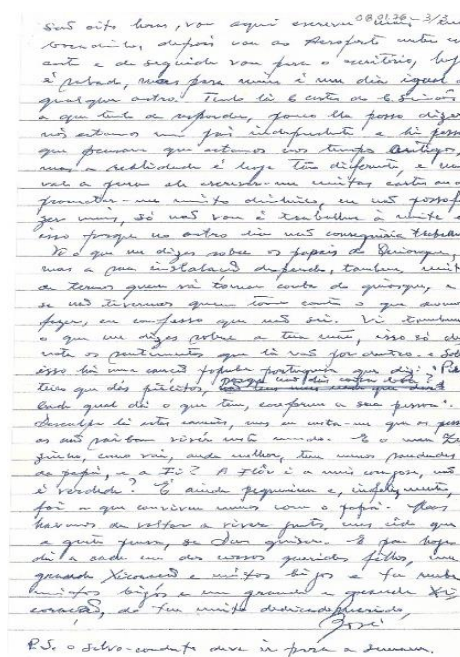 08.01.76 - 3/3
São oito horas, vou aqui escrever mais um
bocadinho, depois vou ao Aeroporto meter es
carta e de seguida vou para o escritório, hoje
é sábado, mas para mim é um dia igual a
qualquer outro. Tenho lá 6 cartas de
a que tenho de responder, pouco lhe posso dizer
nós estamos num país independente e há pesso
que pensam que estamos nos tempos antigos,
mas a realidade é hoje tão diferente, e não
vale a pena ele escrever-me muitas cartas ou
prometer-me muito dinheiro, eu não posso fa
zer mais, só não vou trabalhar à noite e
isso porque no outro dia não conseguiria trabalhar
Vi o que me dizes sobre os papéis do Quiosque,
mas a sua instalação depende, também, muito
de termos quem vá tomar conta do quiosque, e
se não tivermos quem tome conta o que vamos
fazer, eu confesso que não sei. Vi também
o que me dizes sobre a tua mãe, isso só de
nota os sentimentos que lá vão por dentro. e Sobre
isso há uma canção popular portuguesa que diz:
teiro que dás
cada qual dá o que tem, conforme a sua pessoa".
Desculpa lá esta canção, mas eu custa-me que as pess
oas não saibam viver neste mundo. E o meu Zé
zinho, como vai, anda melhor, tem menos saudades
do papá, e a Fi? A Flôr é a mais corajosa, não
é verdade? É ainda pequenina e, infelizmente,
foi a que conviveu menos com o papá. Mas
havemos de voltar a viver juntos, mais cedo que
a gente pensa, se Deus quiser. E por hoje
dá a cada um dos nossos queridos filhos, um
grande Xicoração e muitos bijos e tu recebe
muitos bijos e um grande e grande Xi
coração, do teu muito dedicado
José
P.S. o Salvo-conduto deve ir para a semana.